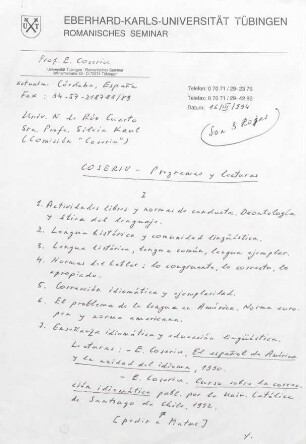 EBERHARD-KARLS-UNIVERSITÄT TÜBINGEN
ROMANISCHES SEMINAR
Prof. E. Coseriu
Universität Tübingen · Romanisches Seminar
Wilhelmstraße 50 · D-72074 Tübingen
Córdoba, España
Fax: 34-57-218788/89
Telefon: 0 70 71 / 29-23 75
Telefax: 0 70 71 / 29-42 92
Datum:
Univ. N. de Río Cuarto
Sra. Profa. Silvia Kaul
(Comisión "Coseriu")
COSERIU - Programas y lecturas
I
1. Actividades libres y normas de conducta. Deontología
y ética del lenguaje.
2. Lengua histórica y comunidad lingüística.
3. Lengua histórica, lengua común, lengua ejemplar.
4. Normas del hablar: lo congruente, lo correcto, lo
apropiado.
5. Corrección idiomática y ejemplaridad.
6. El problema de la lengua en América. Norma euro-
pea y norma americana.
7. Enseñanza idiomática y educación lingüística.
Lecturas: - E. Coseriu, El español de América
y la unidad del idioma, 1990.
- E. Coseriu, Curso sobre la correc-
ción idiomática publ. por la Univ. Católica
de Santiago de Chile, 1992.
[pedir a Matus]